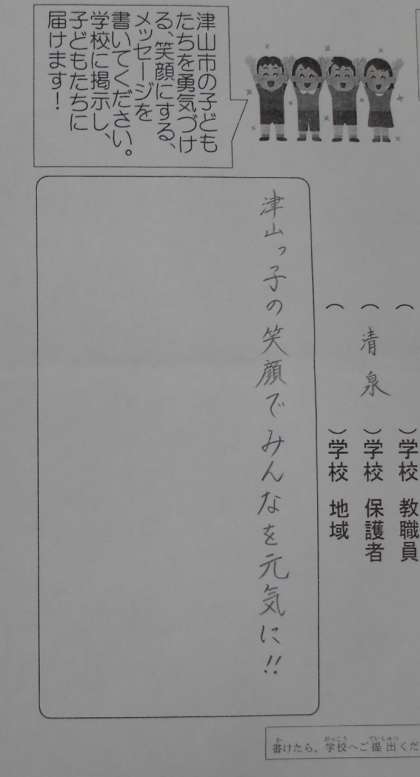 津山市の子ども
たちを勇気づけ
る、笑顔にする、
メッセージを
書いてください。
学校に掲示し、
子どもたちに
届けます！
（　　　）学校 教職員
（ 清泉 ）学校 保護者
（　　　）学校 地域
津山っ子の笑顔でみんなを元気に!!
書けたら、学校へご提出くだ